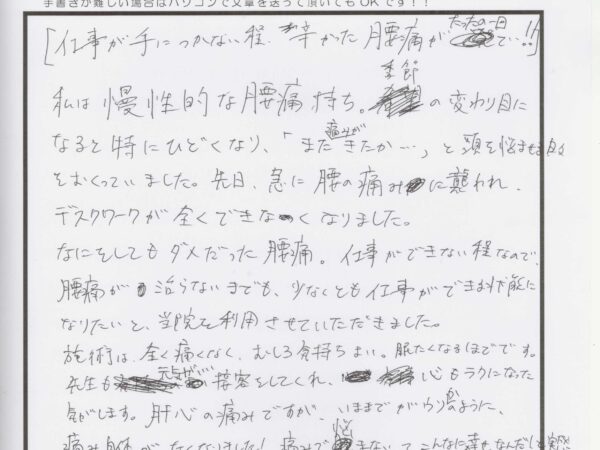 手書きが難しい場合はパソコンで文章を送って頂いてもOKです！！
[仕事が手につかない程、辛かった腰痛がたったの一日で…!!]
私は慢性的な腰痛持ち。季節の変わり目に
なると特にひどくなり、「また痛みがきたか…」と頭を悩ませる日々
をおくっていました。先日、急に腰の痛みに襲われ、
デスクワークが全くできなくなりました。
なにをしてもダメだった腰痛。仕事ができない程なので、
腰痛が治らないまでも、少なくとも仕事ができる状態に
なりたいと、当院を利用させていただきました。
施術は、全く痛くなく、むしろ気持ちよい。眠たくなるほどです。
先生も 接客をしてくれ、心もラクになった
気がします。肝心の痛みですが、いままでがウソかのように、
痛み自体がなくなりました！痛みで悩まないってこんなに幸せなんだと